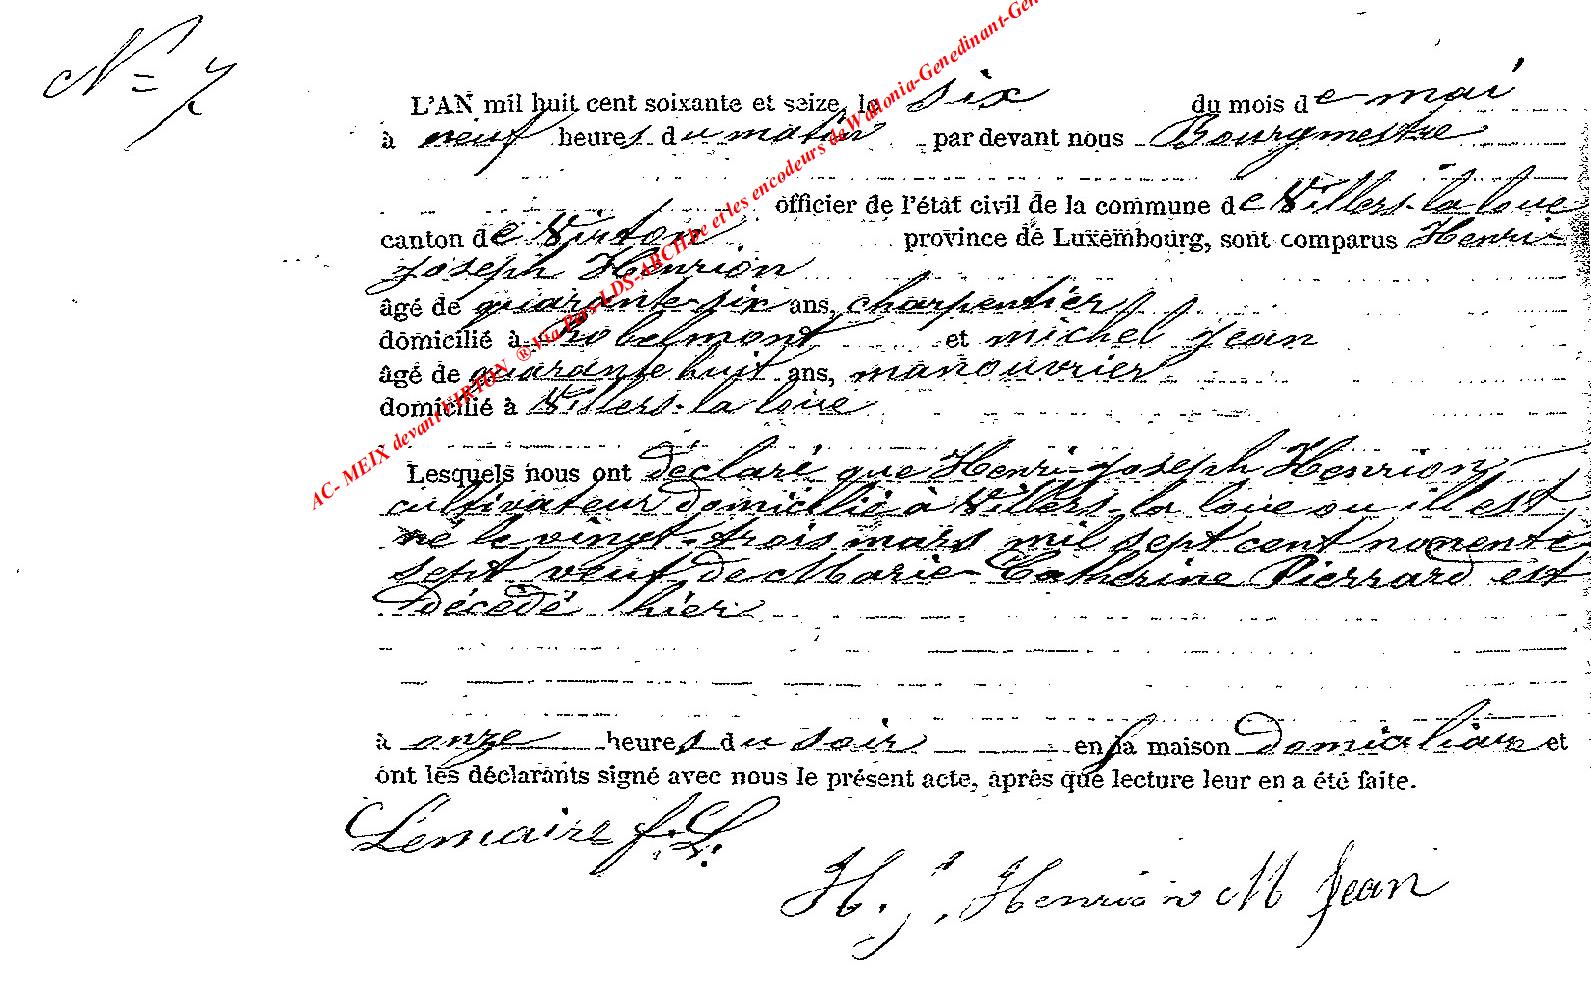 N = 7
L'AN mil huit cent soixante et seize, le six du mois de mai
à neuf heures du matin par devant nous Bourgmestre
officier de l'état civil de la commune de Villers-la loue
canton de Virton province de Luxembourg, sont comparus Henri-
Joseph Henrion
âgé de quarante-six ans, charpentier
domicilié à Robelmont et michel Jean
âgé de quarante huit ans, manouvrier
domicilié à Villers-la loue
Lesquels nous ont déclaré que Henri-Joseph Henrion
cultivateur domicilié à Villers-la loue ou ill est
né le vingt-trois mars mil sept cent nonente-
sept veuf de Marie-Catherine Pierrard est
décédé hier
à onze heures du soir en sa maison Domiciliaire et
ont les déclarants signé avec nous le présent acte, après que lecture leur en a été faite.
Lemaire f. L.
H. J. Henrion M Jean
AC- MEIX devant VIRTON ® Via Pers-LDS-ARCHbe et les encodeurs de Wallonia-Genedinant-Gen